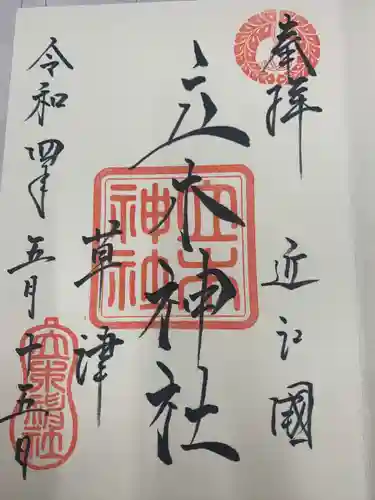 奉拝
近江國
立木神社
草津
令和四年五月十五日
立木神社